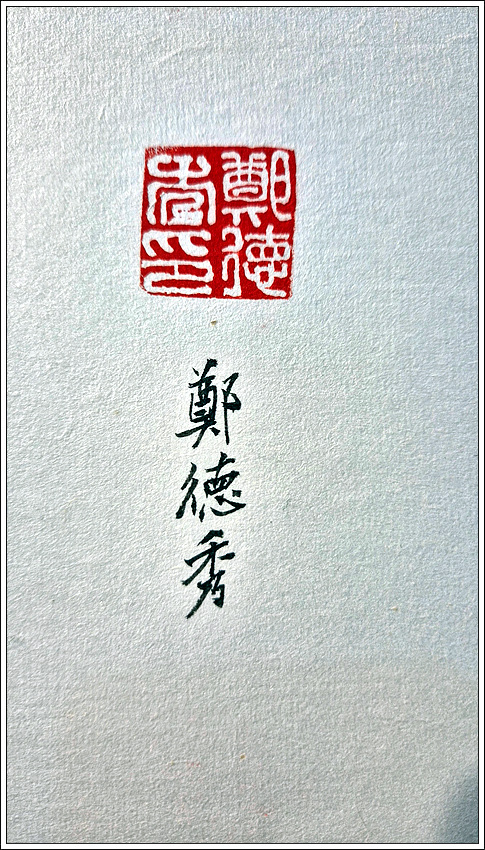 鄭德
秀印
鄭德秀